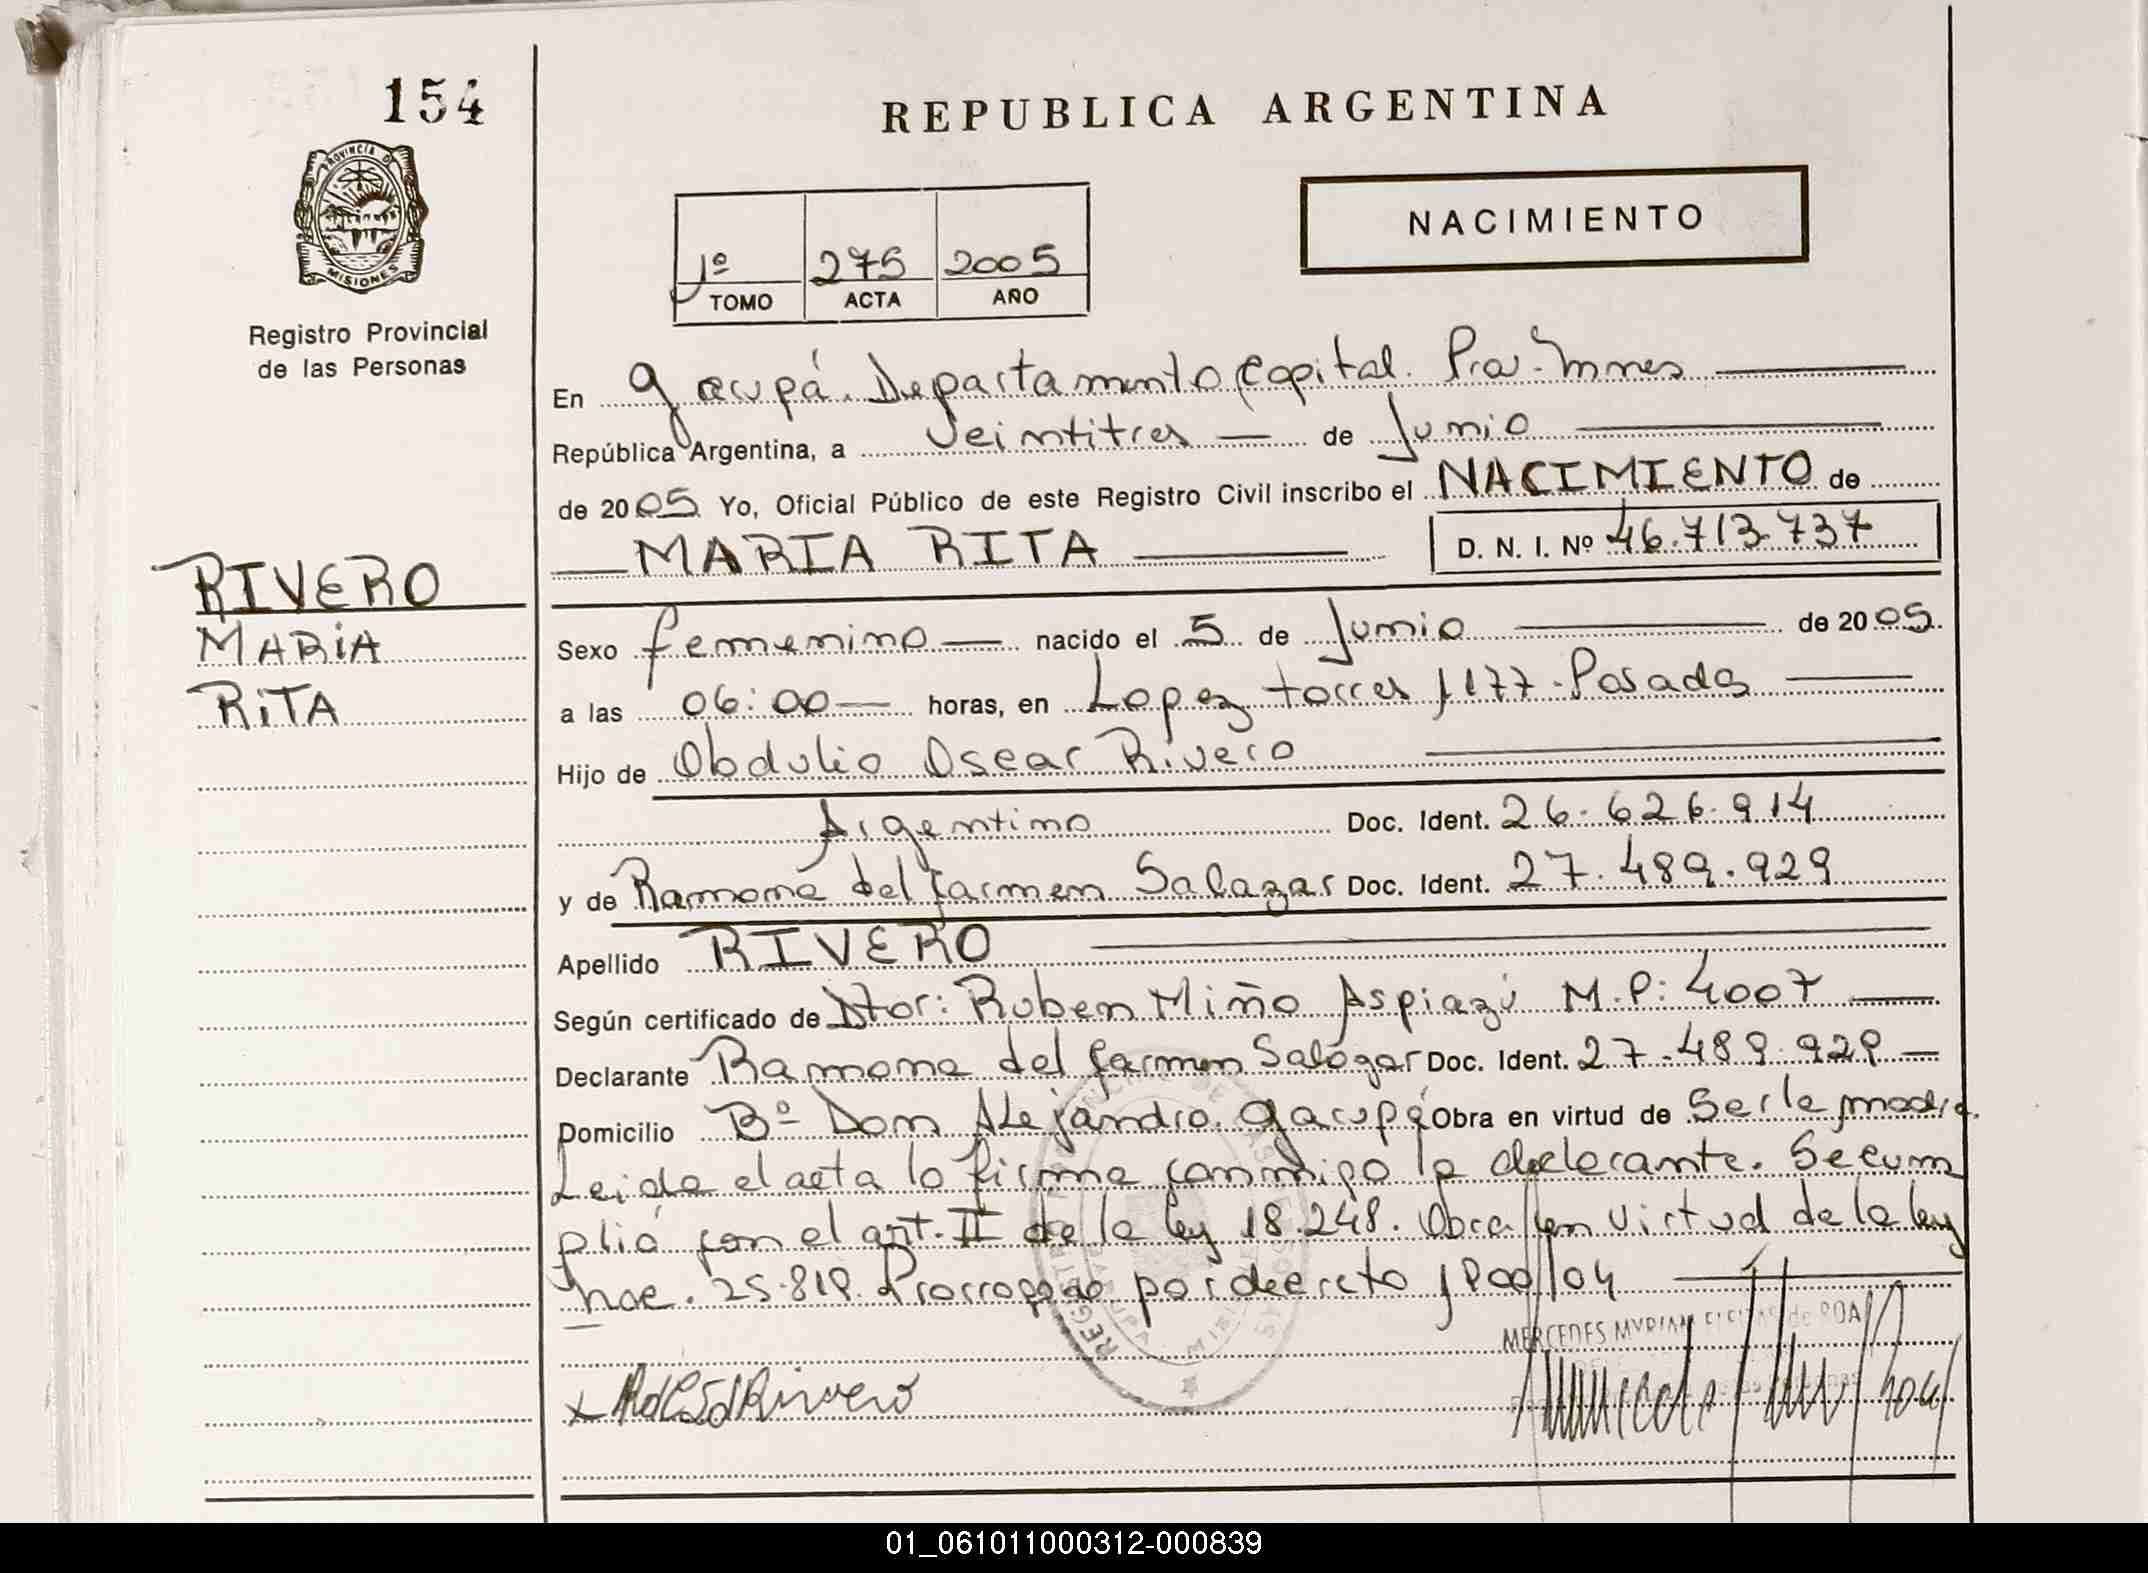 154
PROVINCIA D
MISIONES
Registro Provincial
de las Personas
REPUBLICA ARGENTINA
NACIMIENTO
1º 275 2005
TOMO ACTA AÑO
En Garupá. Departamento Capital. Prov. Mnes
República Argentina, a Veintitres de Junio
de 2005 Yo, Oficial Público de este Registro Civil inscribo el NACIMIENTO de
MARIA RITA D. N. I. Nº 46.713.737
RIVERO
MARIA
RITA
Sexo femenino nacido el 5 de Junio de 2005.
a las 06:00 horas, en Lopez torres 1177-Posadas
Hijo de Obdulio Oscar Rivero
Argentino Doc. Ident. 26.626.914
y de Ramona del Carmen Salazar Doc. Ident. 27.489.929
Apellido RIVERO
Según certificado de Dtor: Ruben Miño Aspiazú M.P: 4007
Declarante Ramona del Carmen Salazar Doc. Ident. 27.489.929
Domicilio Bº Don Alejandro. Garupá Obra en virtud de Ser la madre.
Leida el acta lo firma conmigo la declarante. Se cum
plió con el art. II de la ley 18.248. Obra en virtud de la ley
nac. 25.819. Prorrogado por decreto 1900/04
MERCEDES MYRIAM de ROA
x RdCSdRivero
01_061011000312-000839